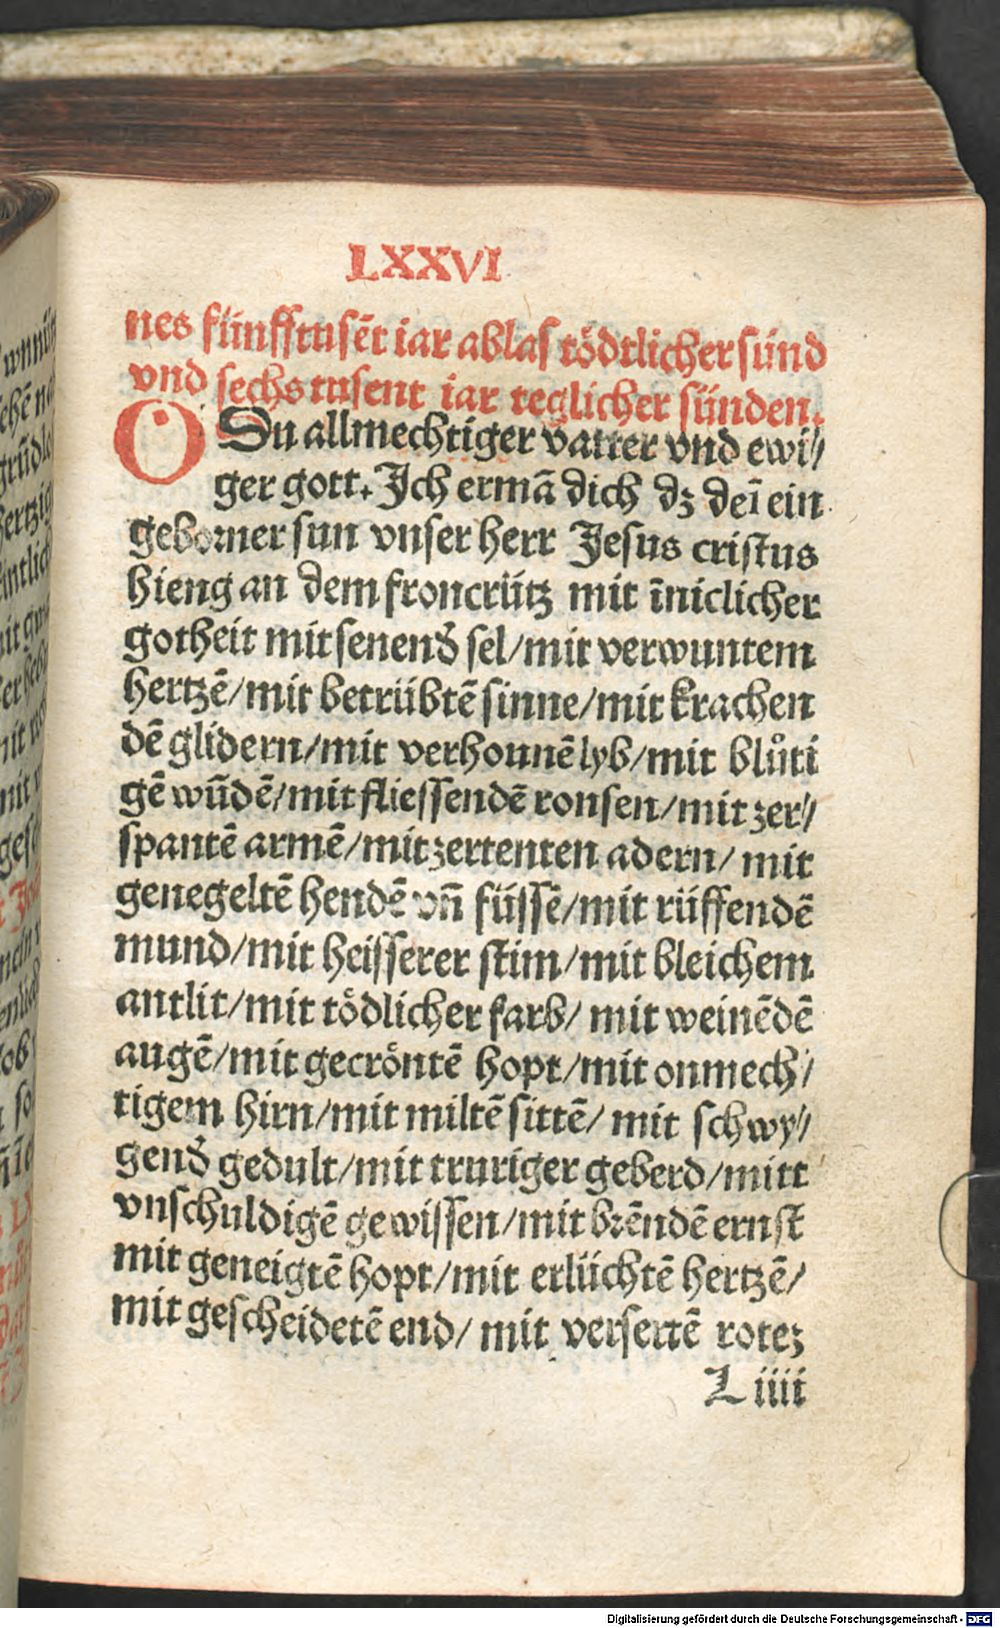 LXXVI
nes fünfftusēt iar ablas tödtlicher sünd
vnd sechs tusent iar teglicher sünden.
O Du allmechtiger vatter vnd ewi⸗
ger gott. Ich ermā dich dz deī ein
geborner sun vnser herr Jesus cristus
hieng an dem froncrütz mit īniclicher
gotheit mit senend̕ sel/mit verwuntem
hertzē/mit betrübtē sinne/mit krachen
dē glidern/mit verhounē lyb/mit blůti
gē wūdē/mit fliessendē ronsen/mit zer⸗
spantē armē/mit zertenten adern/ mit
genegeltē hendē vñ füssē/mit rüffendē
mund/mit heisserer stim/mit bleichem
antlit/mit tödlicher farb/ mit weinēdē
augē/mit gecröntē hopt/mit onmech⸗
tigem hirn/mit miltē sittē/ mit schwy⸗
gend̕ gedult/mit truriger geberd/mitt
vnschuldigē gewissen/mit brēndē ernst
mit geneigtē hopt/mit erlüchtē hertzē/
mit gescheidetē end/ mit versertē rotez
L iiii
Digitalisierung gefördert durch die Deutsche Forschungsgemeinschaft - DFG